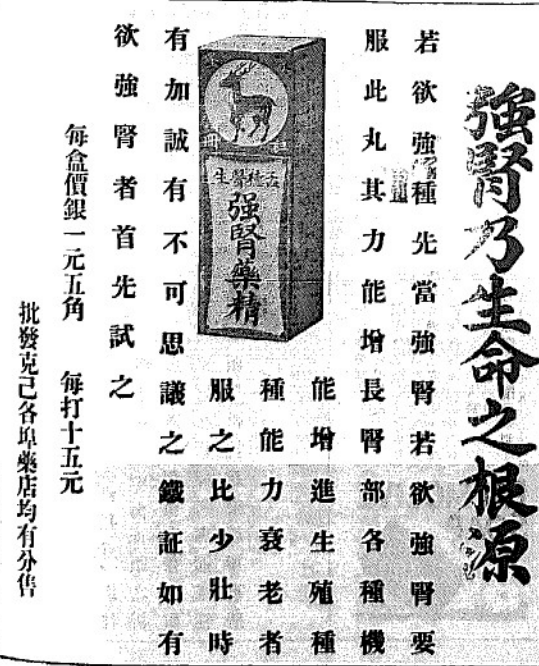 強腎乃生命之根源
若欲強種先當強腎若欲強腎要
服此丸其力能增長腎部各種機
能增進生殖種
種能力衰老者
服之比少壯時
有加誠有不可思議之鐵証如有
欲強腎者首先試之
每盒價銀一元五角 每打十五元
批發克己各埠藥店均有分售
強腎藥精